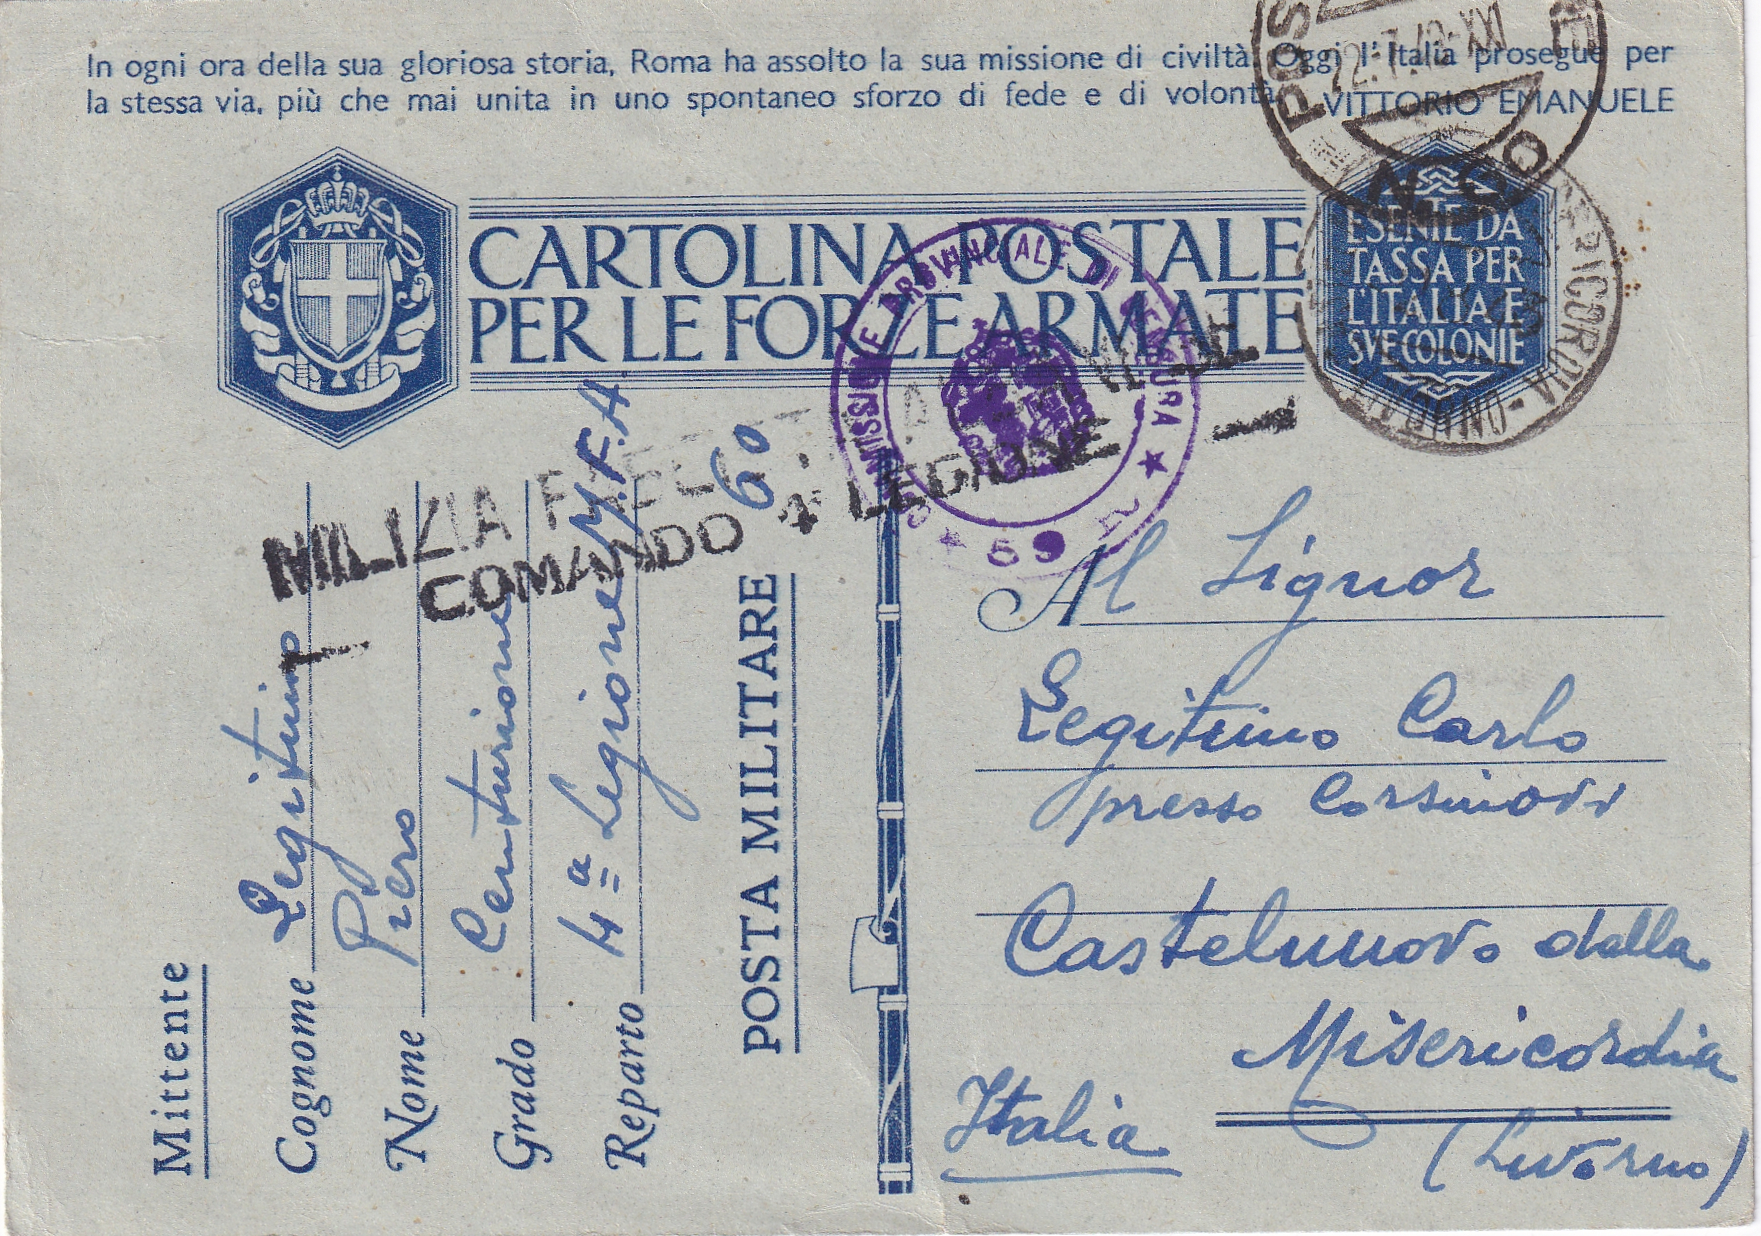 In ogni ora della sua gloriosa storia, Roma ha assolto la sua missione di civiltà. Oggi l'Italia prosegue per
la stessa via, più che mai unita in uno spontaneo sforzo di fede e di volontà. VITTORIO EMANUELE
22.7.43-XXI
CARTOLINA POSTALE
PER LE FORZE ARMATE
ESENTE DA
TASSA PER
L'ITALIA E
SVE COLONIE
PROVINCIALE DI CENSURA
59
MILIZIA
COMANDO 4ª LEGIONE
Mittente
Cognome Legitimo
Nome Piero
Grado Centurione
Reparto 4ª Legione M.F.A.
POSTA MILITARE 60
Al Signor
Legitimo Carlo
presso Corsinovi
Castelnuovo dalla
Misericordia
(Livorno)
Italia